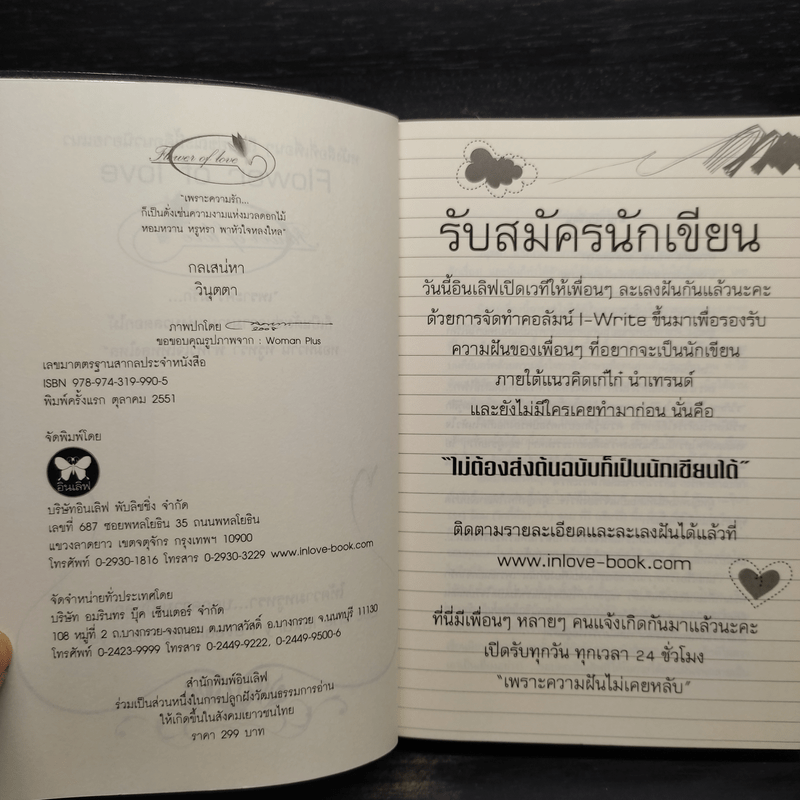 Flower of love
"เพราะความรัก...
ก็เป็นดั่งเช่นความงามแห่งมวลดอกไม้
หอมหวาน หรูหรา พาหัวใจหลงใหล"
กลเสน่หา
วินุตตา
ภาพปกโดย
ขอขอบคุณรูปภาพจาก : Woman Plus
เลขมาตตรฐานสากลประจำหนังสือ
ISBN 978-974-319-990-5
พิมพ์ครั้งแรก ตุลาคม 2551
จัดพิมพ์โดย
อินเลิฟ
บริษัทอินเลิฟ พับลิชชิ่ง จำกัด
เลขที่ 687 ซอยพหลโยธิน 35 ถนนพหลโยธิน
แขวงลาดยาว เขตจตุจักร กรุงเทพฯ 10900
โทรศัพท์ 0-2930-1816 โทรสาร 0-2930-3229 www.inlove-book.com
จัดจำหน่ายทั่วประเทศโดย
บริษัท อมรินทร บุ๊ค เซ็นเตอร์ จำกัด
108 หมู่ที่ 2 ถ.บางกรวย-จงถนอม ต.มหาสวัสดิ์ อ.บางกรวย จ.นนทบุรี 11130
โทรศัพท์ 0-2423-9999 โทรสาร 0-2449-9222, 0-2449-9500-6
สำนักพิมพ์อินเลิฟ
ร่วมเป็นส่วนหนึ่งในการปลูกฝังวัฒนธรรมการอ่าน
ให้เกิดขึ้นในสังคมเยาวชนไทย
ราคา 299 บาท
รับสมัครนักเขียน
วันนี้อินเลิฟเปิดเวทีให้เพื่อนๆ ละเลงฝันกันแล้วนะคะ
ด้วยการจัดทำคอลัมน์ I-Write ขึ้นมาเพื่อรองรับ
ความฝันของเพื่อนๆ ที่อยากจะเป็นนักเขียน
ภายใต้แนวคิดเก๋ไก๋ นำเทรนด์
และยังไม่มีใครเคยทำมาก่อน นั่นคือ
"ไม่ต้องส่งต้นฉบับก็เป็นนักเขียนได้"
ติดตามรายละเอียดและละเลงฝันได้แล้วที่
www.inlove-book.com
ที่นี่มีเพื่อนๆ หลายๆ คนแจ้งเกิดกันมาแล้วนะคะ
เปิดรับทุกวัน ทุกเวลา 24 ชั่วโมง
"เพราะความฝันไม่เคยหลับ"